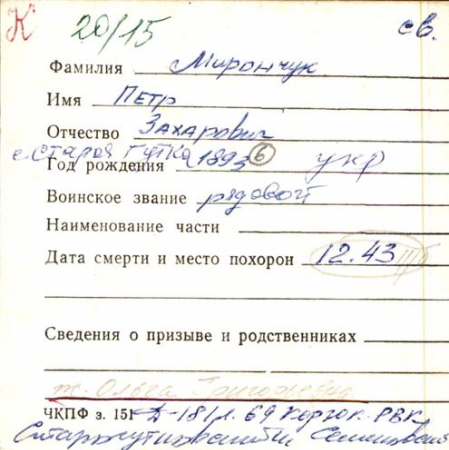 К 20/15 св.
Фамилия Мирончук
Имя ПЕТР
Отчество Захарович
с. Старая Гутка
Год рождения 1893 (6) укр
Воинское звание рядовой
Наименование части
Дата смерти и место похорон 12.43
Сведения о призыве и родственниках
ж. Ольга Григорьевна
ЧКПФ з. 151 181л. 69 РВК